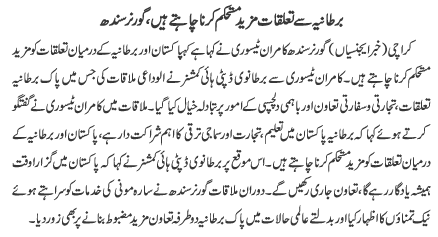 برطانیہ سے تعلقات مزید مستحکم کرنا چاہتے ہیں، گورنر سندھ
کراچی (خبر ایجنسیاں) گورنر سندھ کامران ٹیسوری نے کہا ہے کہ پاکستان اور برطانیہ کے درمیان تعلقات کو مزید
مستحکم کرنا چاہتے ہیں۔ کامران ٹیسوری سے برطانوی ڈپٹی ہائی کمشنر نے الوداعی ملاقات کی جس میں پاک برطانیہ
تعلقات، تجارتی و سفارتی تعاون اور باہمی دلچسپی کے امور پر تبادلہ خیال کیا گیا۔ ملاقات میں کامران ٹیسوری نے گفتگو
کرتے ہوئے کہا کہ برطانیہ پاکستان میں تعلیم، تجارت اور سماجی ترقی کا اہم شراکت دار ہے، پاکستان اور برطانیہ کے
درمیان تعلقات کو مزید مستحکم کرنا چاہتے ہیں۔ اس موقع پر برطانوی ڈپٹی ہائی کمشنر نے کہا کہ پاکستان میں گزارا وقت
ہمیشہ یادگار رہے گا، تعاون جاری رکھیں گے۔ دوران ملاقات گورنر سندھ نے سارہ مونی کی خدمات کو سراہتے ہوئے
نیک تمناؤں کا اظہار کیا اور بدلتے عالمی حالات میں پاک برطانیہ دوطرفہ تعاون مزید مضبوط بنانے پر بھی زور دیا۔